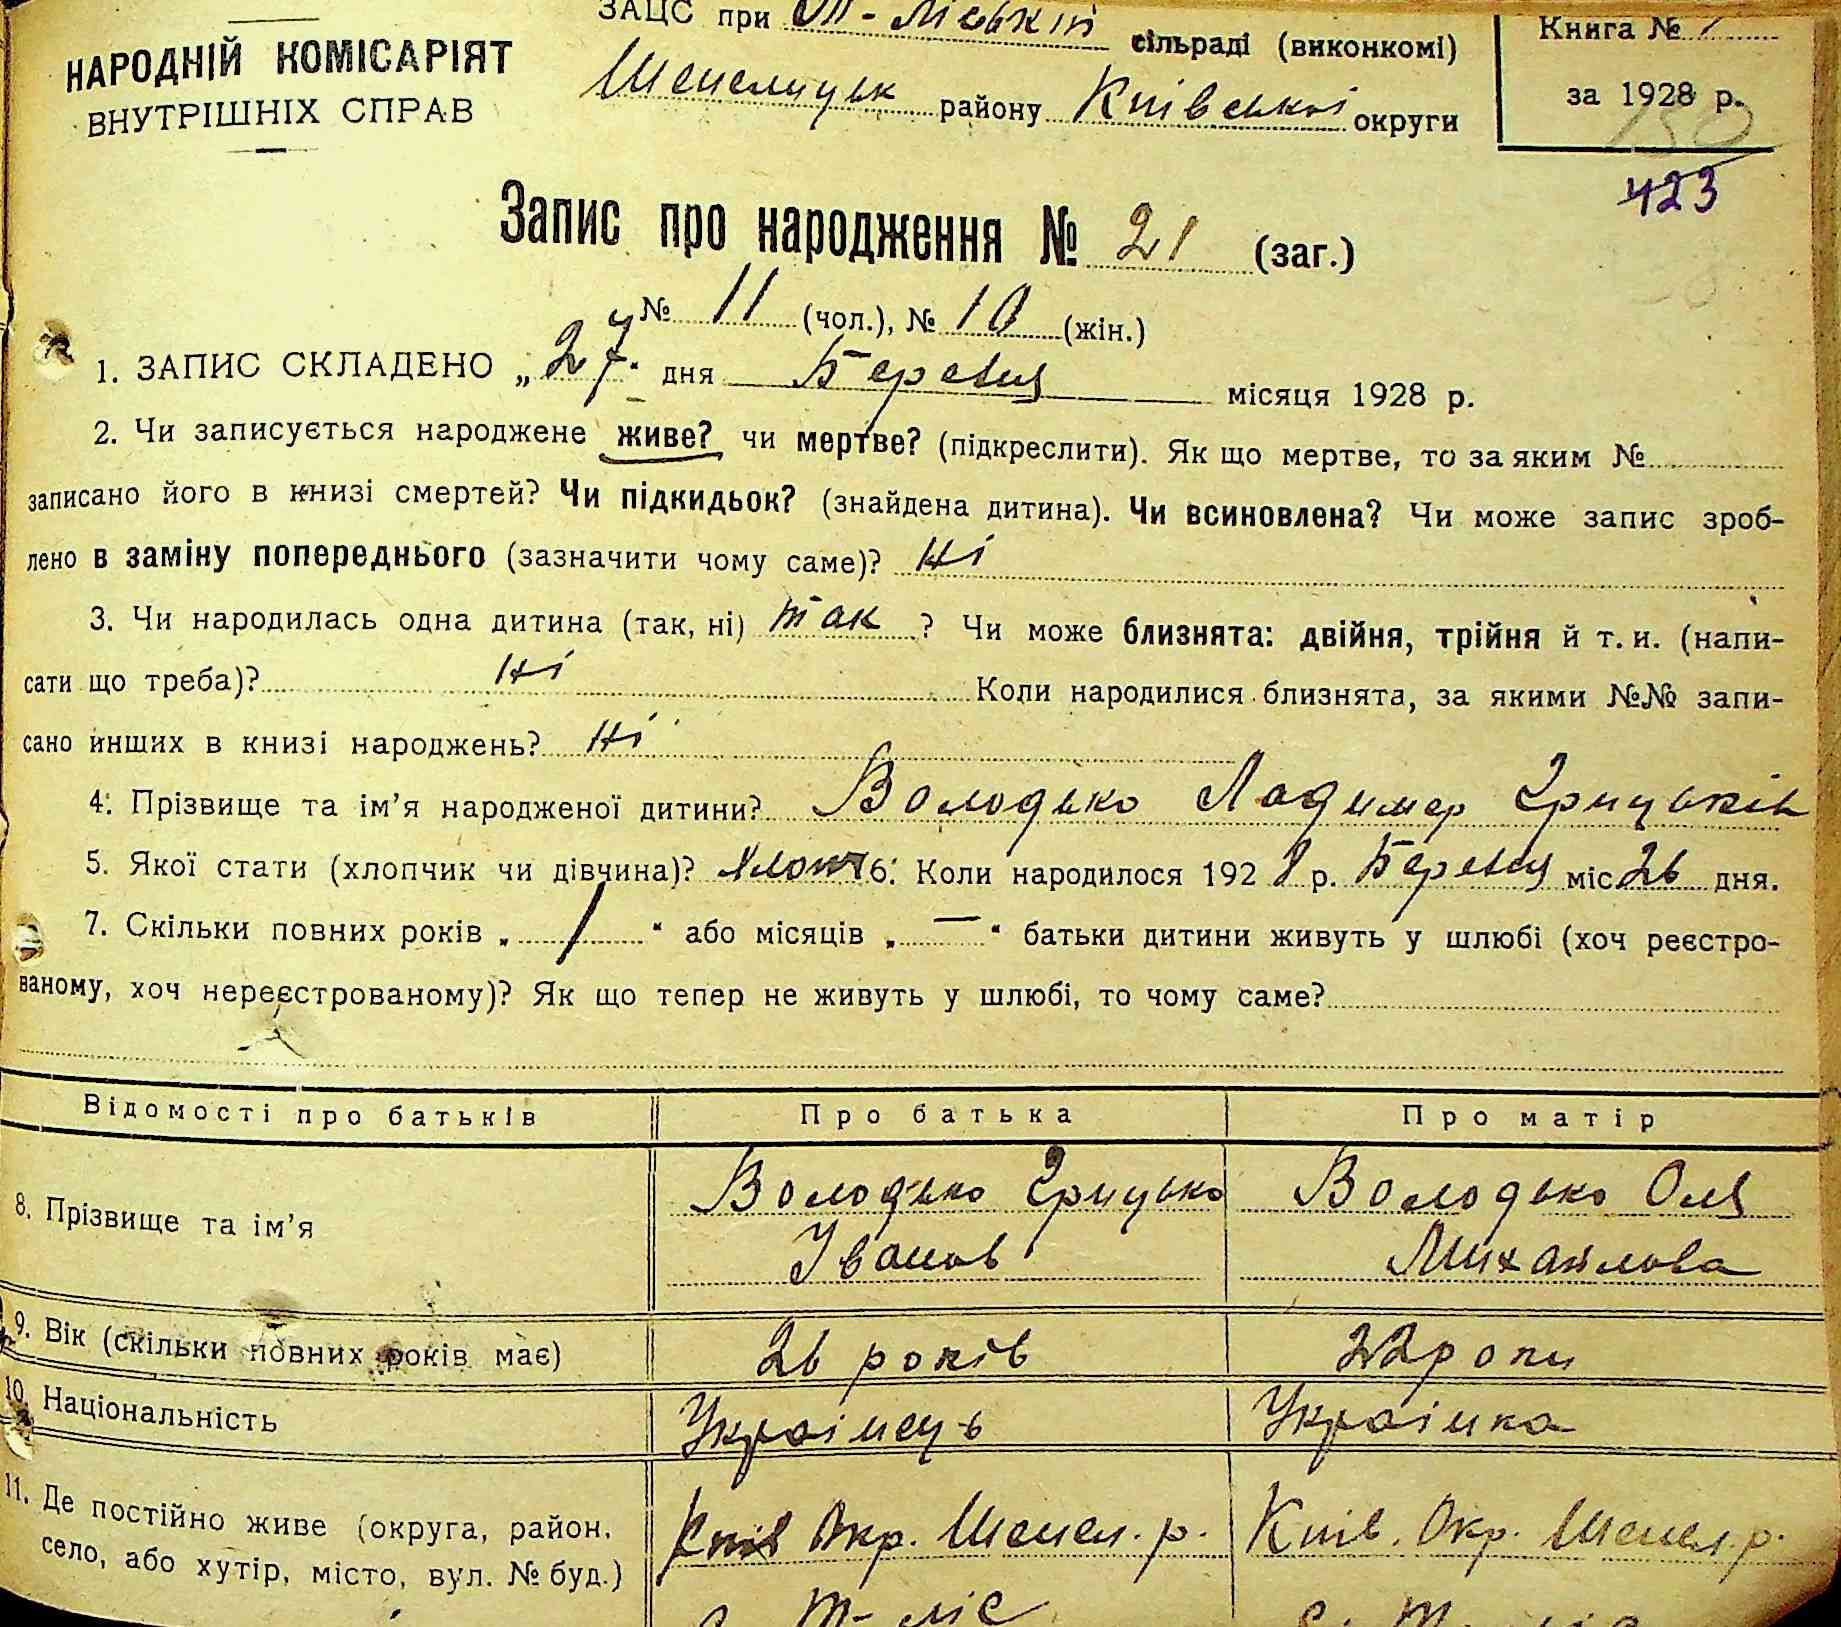 НАРОДНІЙ КОМІСАРІЯТ
ВНУТРІШНІХ СПРАВ
ЗАЦС при Т-Ліській сільраді (виконкомі)
Шепелицьк району Київської округи
Книга №
за 1928 р.
150
423
Запис про народження № 21 (заг.)
№ 11 (чол.), № 10 (жін.)
1. ЗАПИС СКЛАДЕНО „27“ дня Березня місяця 1928 р.
2. Чи записується народжене живе? чи мертве? (підкреслити). Як що мертве, то за яким №
записано його в книзі смертей? Чи підкидьок? (знайдена дитина). Чи всиновлена? Чи може запис зроб-
лено в заміну попереднього (зазначити чому саме)? Ні
3. Чи народилась одна дитина (так, ні) так ? Чи може близнята: двійня, трійня й т. и. (напи-
сати що треба)? Ні Коли народилися близнята, за якими №№ запи-
сано инших в книзі народжень? Ні
4. Прізвище та ім’я народженої дитини? Володько Ладимер Грицьків
5. Якої стати (хлопчик чи дівчина)? 6. Коли народилося 1928 р. Березня міс 26 дня.
7. Скільки повних років „ 1 “ або місяців „ — “ батьки дитини живуть у шлюбі (хоч реєстро-
ваному, хоч нереєстрованому)? Як що тепер не живуть у шлюбі, то чому саме?
Відомості про батьків Про батька Про матір
8. Прізвище та ім’я Володько Грицько Володько Оля
Іванов Михайлова
9. Вік (скільки повних років має) 26 років 22 роки
10. Національність Українець Українка
11. Де постійно живе (округа, район, Київ Окр. Шепел. р. Київ. Окр. Шепел. р.
село, або хутір, місто, вул. № буд.) Т-Ліс